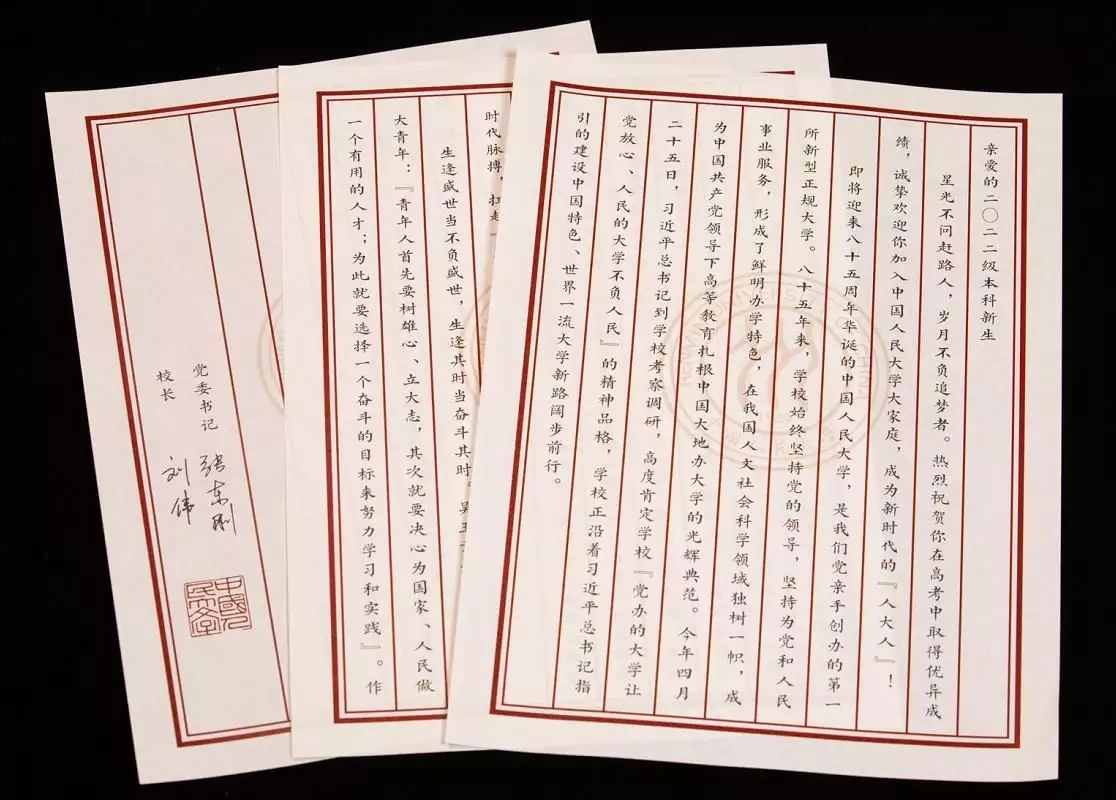 亲爱的二〇二二级本科新生
星光不问赶路人，岁月不负追梦者。热烈祝贺你在高考中取得优异成
绩，诚挚欢迎你加入中国人民大学大家庭，成为新时代的『人大人』！
即将迎来八十五周年华诞的中国人民大学，是我们党亲手创办的第一
所新型正规大学。八十五年来，学校始终坚持党的领导，坚持为党和人民
事业服务，形成了鲜明办学特色，在我国人文社会科学领域独树一帜，成
为中国共产党领导下高等教育扎根中国大地办大学的光辉典范。今年四月
二十五日，习近平总书记到学校考察调研，高度肯定学校『党办的大学让
党放心、人民的大学不负人民』的精神品格，学校正沿着习近平总书记指
引的建设中国特色、世界一流大学新路阔步前行。
时代脉搏，扛起
生逢盛世当不负盛世，生逢其时当奋斗其时。吴玉
大青年：『青年人首先要树雄心、立大志，其次就要决心为国家、人民做
一个有用的人才；为此就要选择一个奋斗的目标来努力学习和实践』。作
党委书记 张东刚
校长 刘伟
中国人民大学